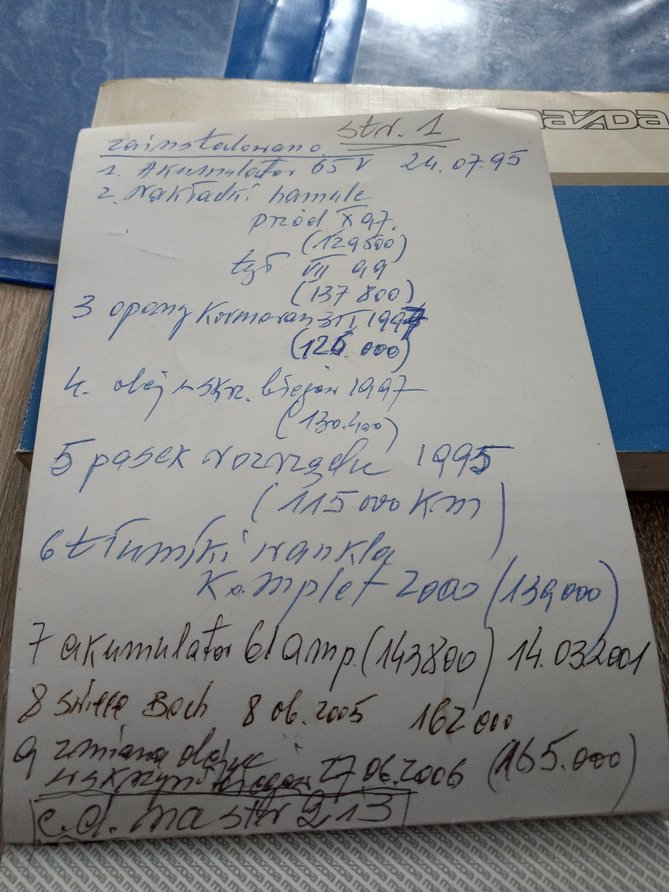 mazDa
str. 1
zainstalowano
1. Akumulator 65 V 24.07.95
2. Nakładki hamulc
przód X 97.
(129500)
tył VII 99
(137 800)
3 opony Kormoran 3 1997
(126.000)
4. olej w skrz. biegów 1997
(130.400)
5 pasek rozrządu 1995
(115000 K.m)
6 tłumiki wankla
Komplet 2000 (139000)
7 akumulator 61 amp. (143800) 14.03.2001
8 świece Boch 8 06.2005 162 000
9 zmiana oleju
w skrzyni biegów 27 06.2006 (165.000)
c.d. na str 2 i 3